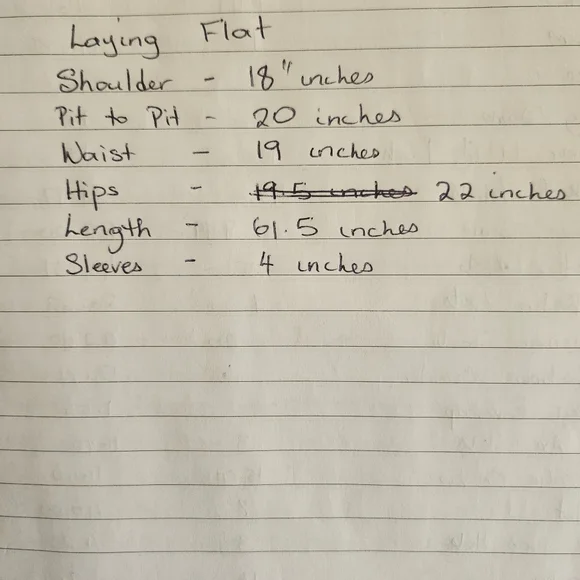 Laying Flat
Shoulder - 18" inches
Pit to Pit - 20 inches
Waist - 19 inches
Hips - 19.5 inches 22 inches
Length - 61.5 inches
Sleeves - 4 inches